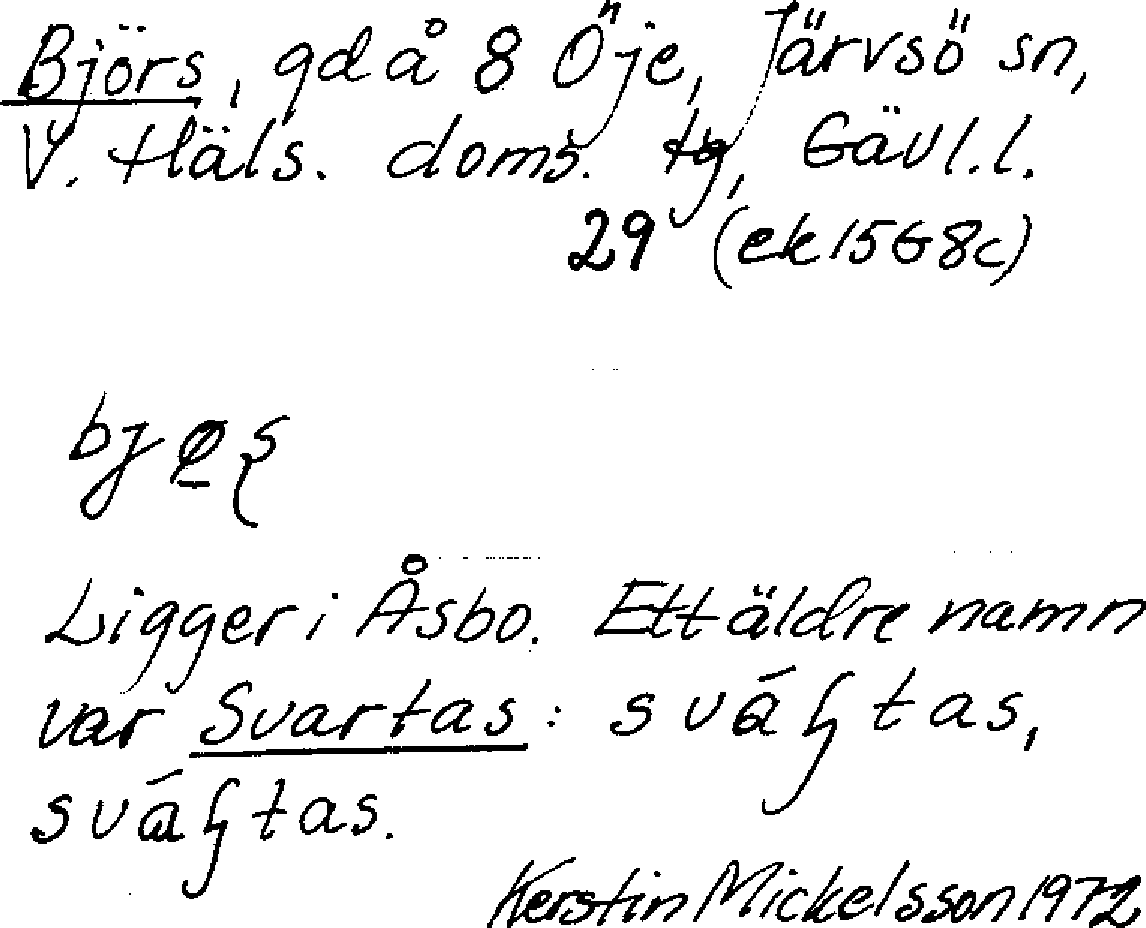 Björs, gdå 8 Öje, Järvsö sn,
V. Häls. doms. tg, Gävl.l.
29 (ek 15G8c)
Ligger i Åsbo. Ett äldre namn
var Svartas:
Kerstin Mickelsson 1972